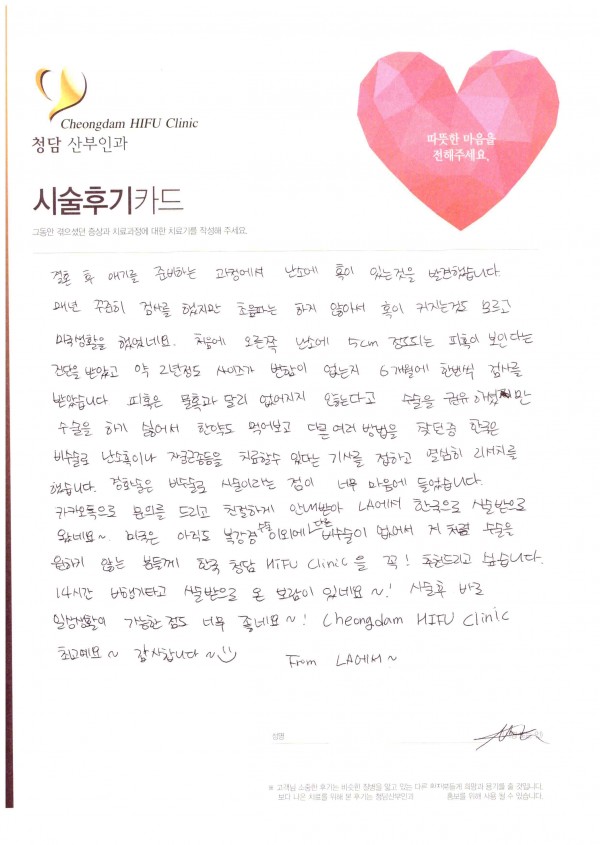 Cheongdam HIFU Clinic
청담 산부인과
따뜻한 마음을
전해주세요.
시술후기카드
그동안 겪으셨던 증상과 치료과정에 대한 치료기를 작성해 주세요.
결혼 후 애기를 준비하는 과정에서 난소에 혹이 있는것을 발견했습니다.
매년 꾸준히 검사를 했지만 초음파는 하지 않아서 혹이 커지는것도 모르고
미국생활을 했었네요. 처음에 오른쪽 난소에 5cm 정도되는 피혹이 보인다는
진단을 받았고 약 2년정도 사이즈가 변함이 없는지 6개월에 한번씩 검사를
받았습니다 피혹은 물혹과 달리 없어지지 않는다고 수술을 권유하셨지만
수술을 하기 싫어서 한약도 먹어보고 다른 여러방법을 찾던중 한국은
비수술로 난소혹이나 자궁근종등을 치료할수 있다는 기사를 접하고 열심히 리서치를
했습니다. 경화술은 비수술로 시술이라는 점이 너무 마음에 들었습니다.
카카오톡으로 문의를 드리고 친절하게 안내받아 LA에서 한국으로 시술받으로
왔네요~ 미국은 아직도 복강경수술 이외에 다른 비수술이 없어서 저 처럼 수술을
원하지 않는 분들께 한국 청담 HiFU Clinic을 꼭! 추천드리고 싶습니다.
14시간 비행기타고 시술받으로 온 보람이 있네요~! 시술후 바로
일상생활이 가능한점도 너무 좋네요~! Cheongdam HIFU Clinic
최고예요~ 감사합니다~
From LA에서~
성명
※ 고객님 소중한 후기는 비슷한 질병을 앓고 있는 다른 환자분들께 희망과 용기를 줄 것입니다.
보다 나은 치료를 위해 본 후기는 청담산부인과 홍보를 위해 사용 될 수 있습니다.